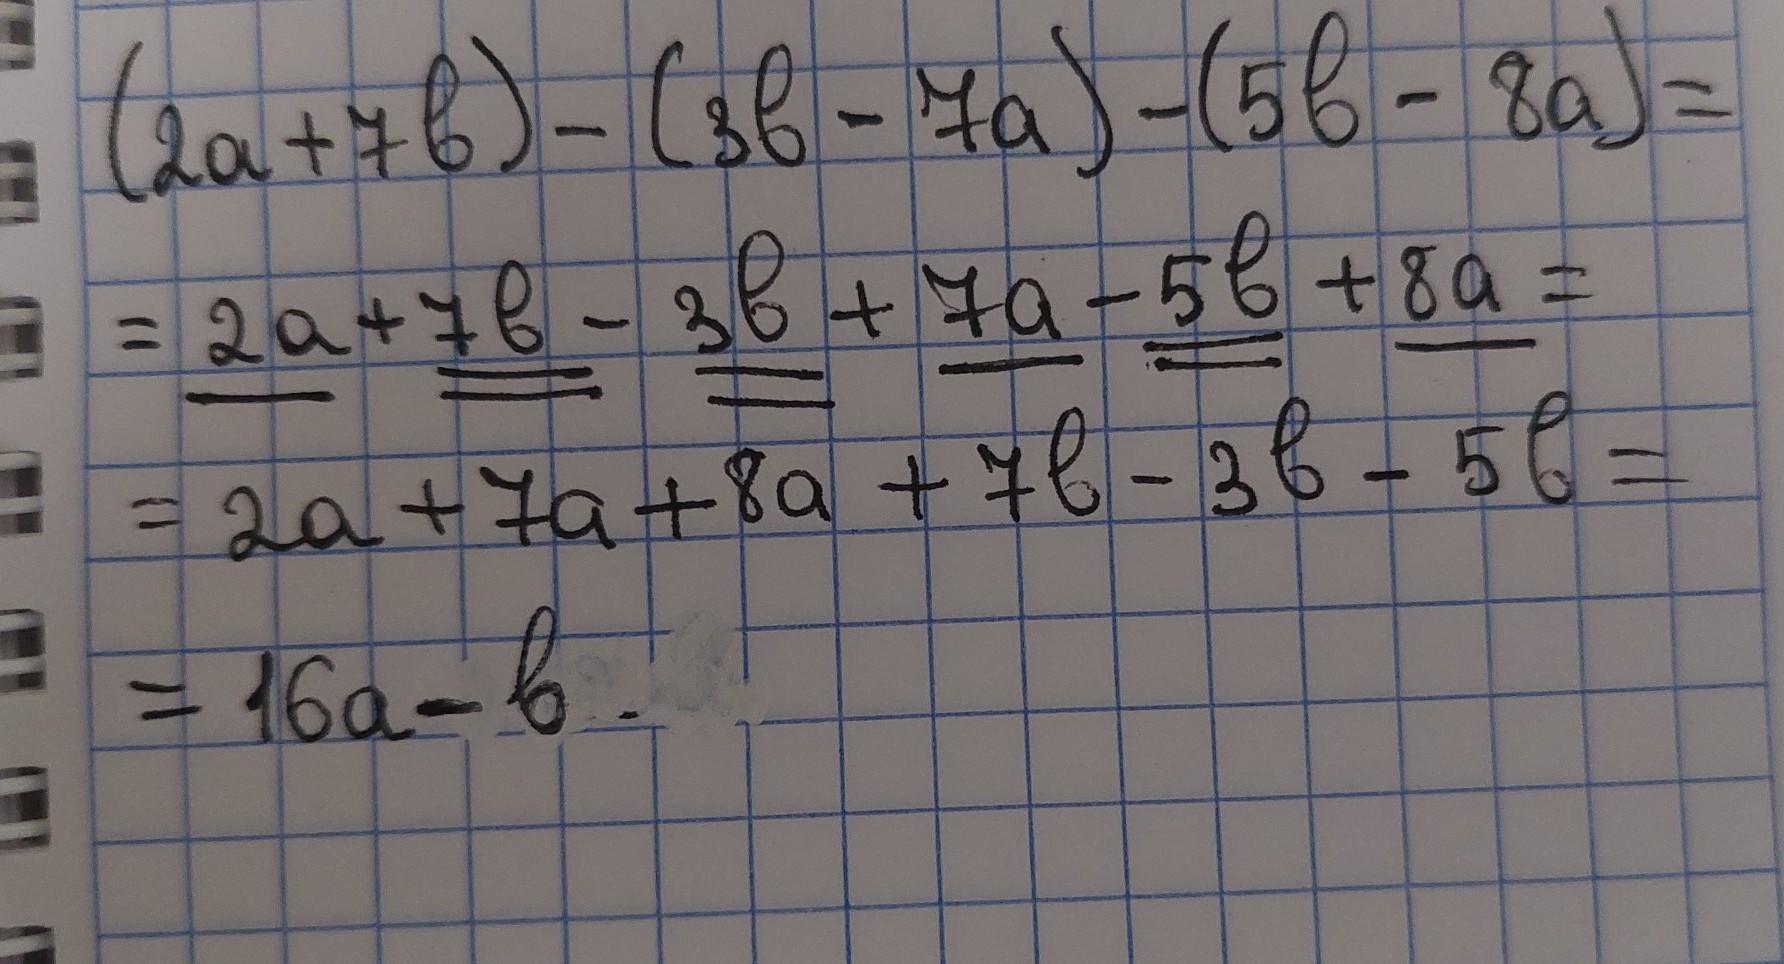 (2a+7b)-(3b-7a)-(5b-8a)=
=2a+7b-3b+7a-5b+8a=
=2a+7a+8a+7b-3b-5b=
=16a-b.